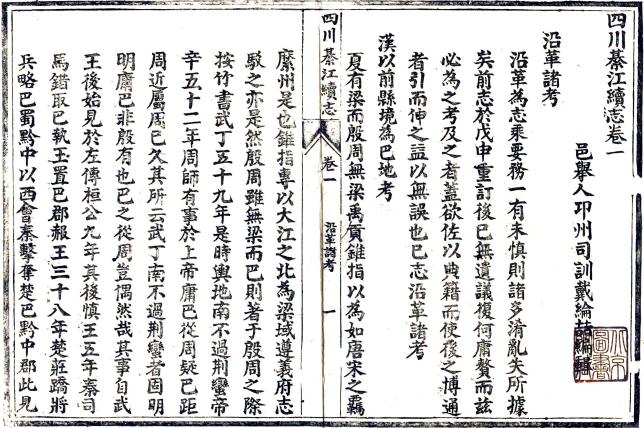 四川綦江續志卷一
邑舉人邛州司訓戴綸喆編輯
沿革諸考
沿革為志乘要務一有未慎則諸多淆亂失所據
矣前志於戊申重訂後已無遺議復何庸贅而茲
必為之考及之者蓋欲佐以典籍而使後之博通
者引而伸之益以無誤也已志沿革諸考
漢以前縣境為巴地考
夏有梁而殷周無梁禹貢錐指以為如唐宋之覊
四川綦江續志
卷一
沿革諸考
一
縻州是也錐指專以大江之北為梁域遵義府志
駁之亦是然殷周雖無梁而巴則著于殷周之際
按竹書武丁五十九年是時輿地南不過荆蠻帝
辛五十二年周師有事於上帝庸巴從周疑巴距
周近屬周已久其所云武丁南不過荆蠻者固明
明庸巴非殷有也巴之從周豈偶然哉其事自武
王後始見於左傳桓公九年其後慎王五年秦司
馬錯取巴執王置巴郡赧王三十八年楚莊蹻將
兵略巴蜀黔中以西會秦擊奪楚巴黔中郡此見